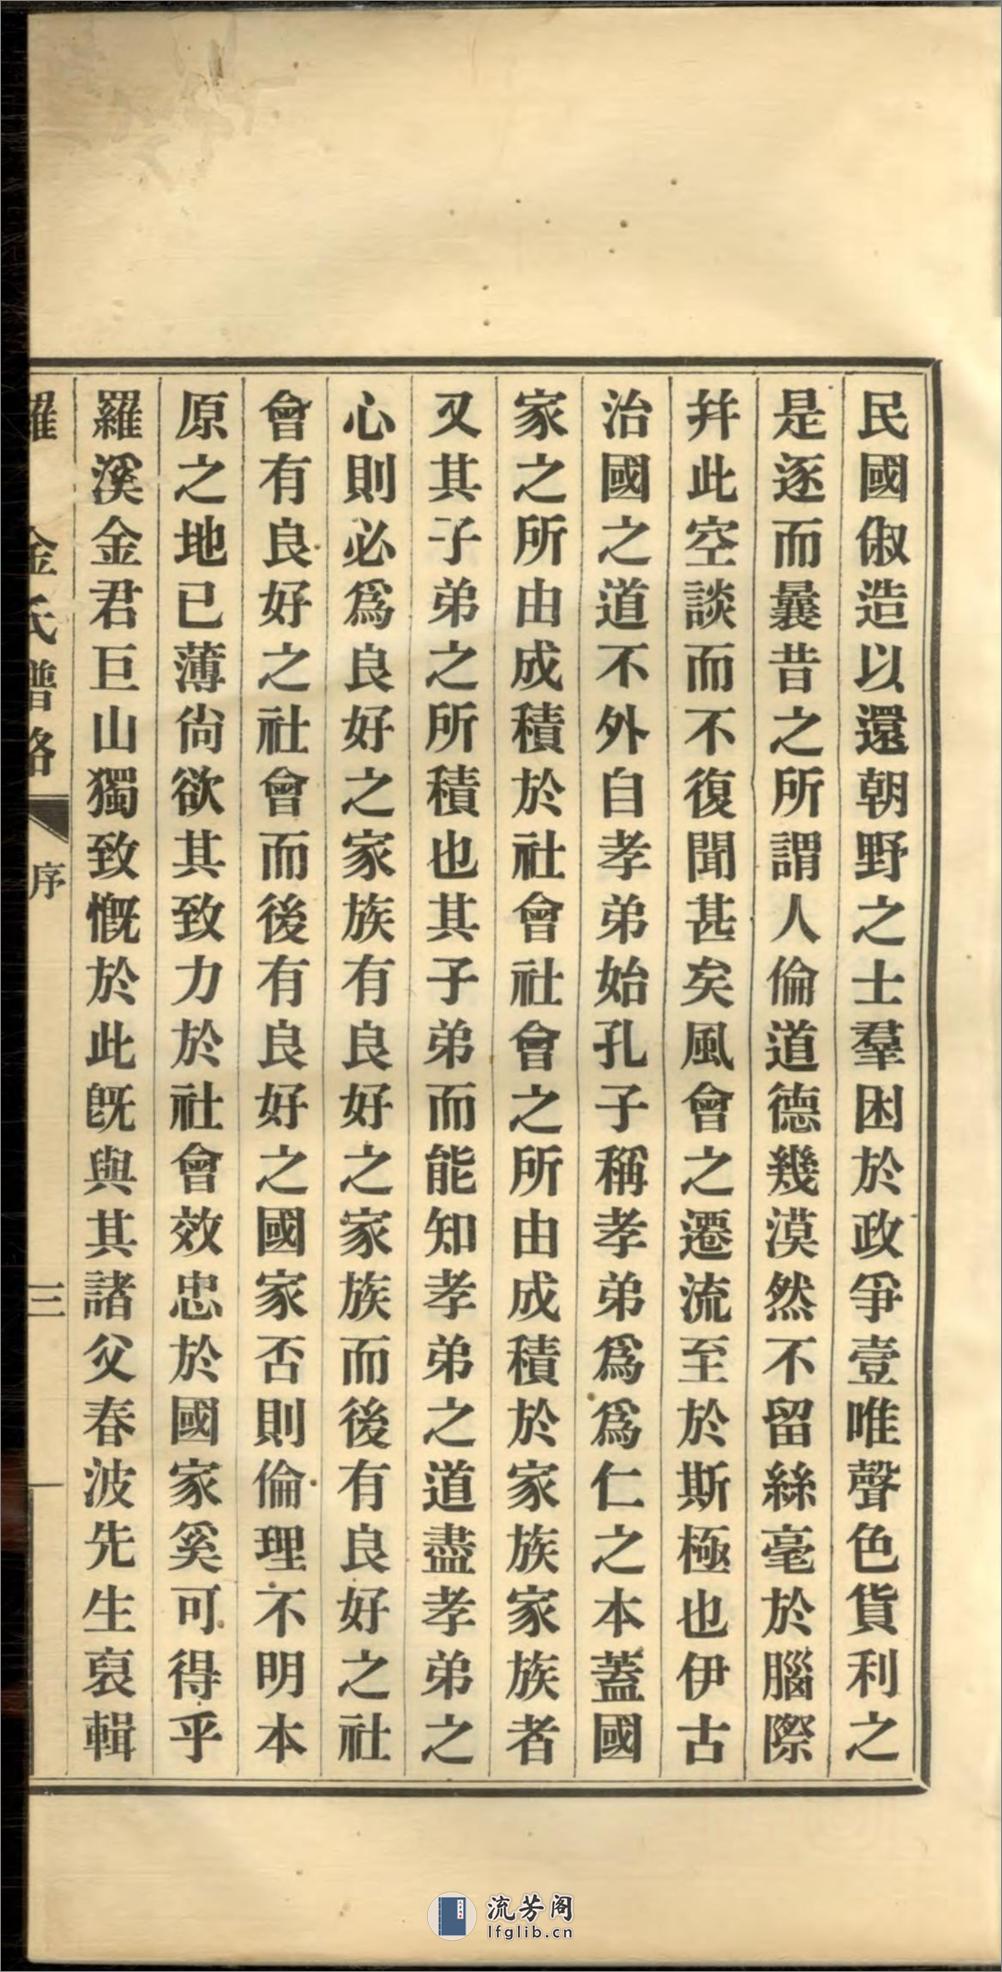 民國俶造以還朝野之士羣困於政爭壹唯聲色貨利之
是逐而曩昔之所謂人倫道德幾漠然不留絲毫於腦際
幷此空談而不復聞甚矣風會之遷流至於斯極也伊古
治國之道不外自孝弟始孔子稱孝弟爲爲仁之本蓋國
家之所由成積於社會社會之所由成積於家族家族者
又其子弟之所積也其子弟而能知孝弟之道盡孝弟之
心則必爲良好之家族有良好之家族而後有良好之社
會有良好之社會而後有良好之國家否則倫理不明本
原之地已薄尙欲其致力於社會效忠於國家奚可得乎
羅溪金君巨山獨致慨於此旣與其諸父春波先生裒輯
羅 金氏譜略 序 三
流芳阁
lfglib.cn